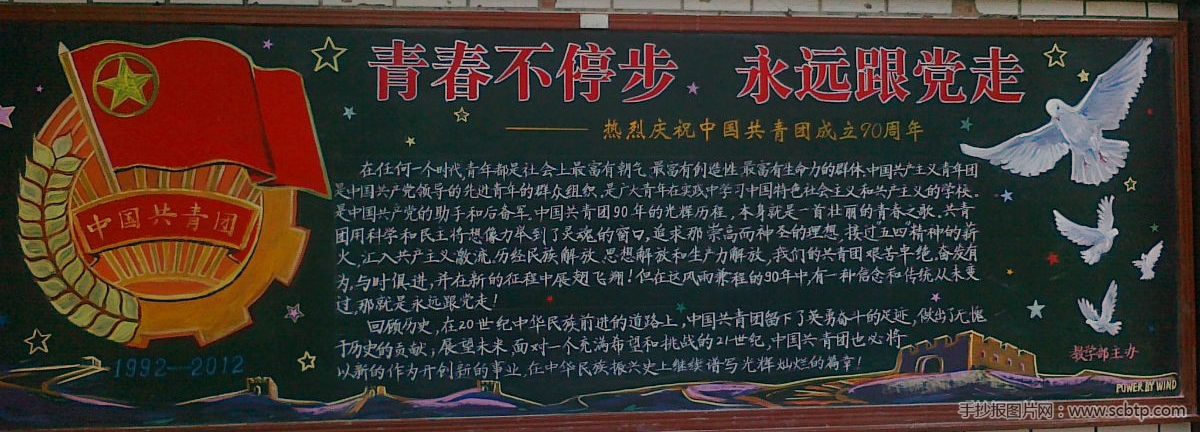 青春不停步 永远跟党走
——热烈庆祝中国共青团成立90周年
中国共青团
在任何一个时代青年都是社会上最富有朝气,最富有创造性,最富有生命力的群体.中国共产主义青年团
是中国共产党领导的先进青年的群众组织,是广大青年在实践中学习中国特色社会主义和共产主义的学校.
是中国共产党的助手和后备军.中国共青团90年的光辉历程,本身就是一首壮丽的青春之歌.共青
团用科学和民主将想像力举到了灵魂的窗口,追求那崇高而神圣的理想,接过"五四精神的薪
火,汇入共产主义激流.历经民族解放、思想解放和生产力解放,我们的共青团艰苦卓绝.奋发有
为,与时俱进,并在新的征程中展翅飞翔!但在这风雨兼程的90年中,有一种信念和传统从未变
过,那就是永远跟党走!
回顾历史,在20世纪中华民族前进的道路上,中国共青团留下了英勇奋斗的足迹,做出了无愧
于历史的贡献;展望未来,面对一个充满希望和挑战的21世纪,中国共青团也必将
以新的作为开创新的事业,在中华民族振兴史上继续谱写光辉灿烂的篇章!
1992—2012
教学部主办
POWER BY WIND
手抄报图片网:www.scbtp.com